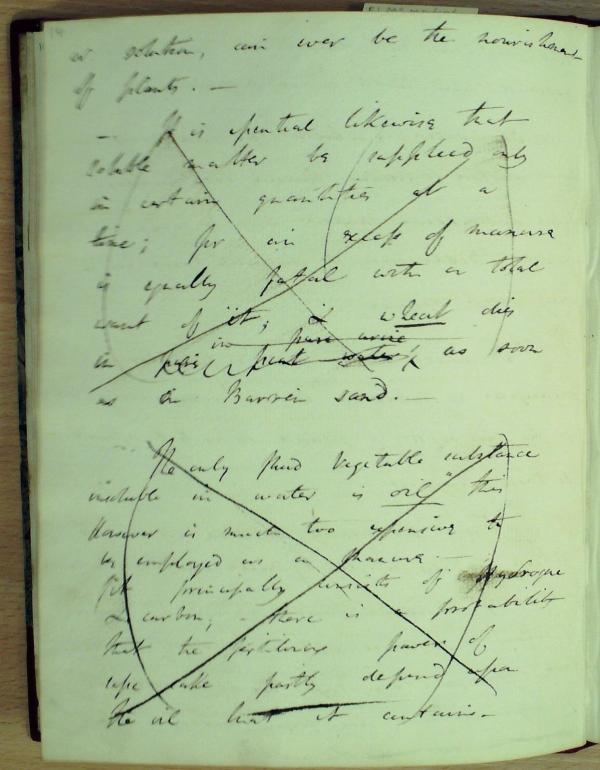 or solution, can ever be the nourishment
of plants. —
— It is essential likewise that
soluble matter be supplied only
in certain quantities at a
time; for an excess of manure
is equally fatal with a total
want of it; & wheat dies
in pure urine
in peat water as soon
as in Barren sand. —
The only fluid Vegetable substance
insoluble in water is oil this
However is much too expensive to
be employed as a manure. —
It principally consists of Hydrogene
& carbon; - there is a probability
that the fertilizing power of
rape cake partly depend upon
the oil that it contains. —